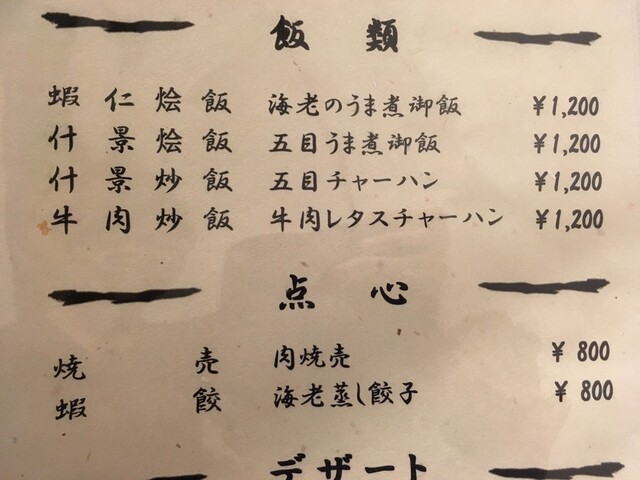 飯 類
蝦仁烩飯 海老のうま煮御飯 ¥1,200
什景烩飯 五目うま煮御飯 ¥1,200
什景炒飯 五目チャーハン ¥1,200
牛肉炒飯 牛肉レタスチャーハン ¥1,200
点 心
焼売 肉焼売 ¥ 800
蝦餃 海老蒸し餃子 ¥ 800
デザート